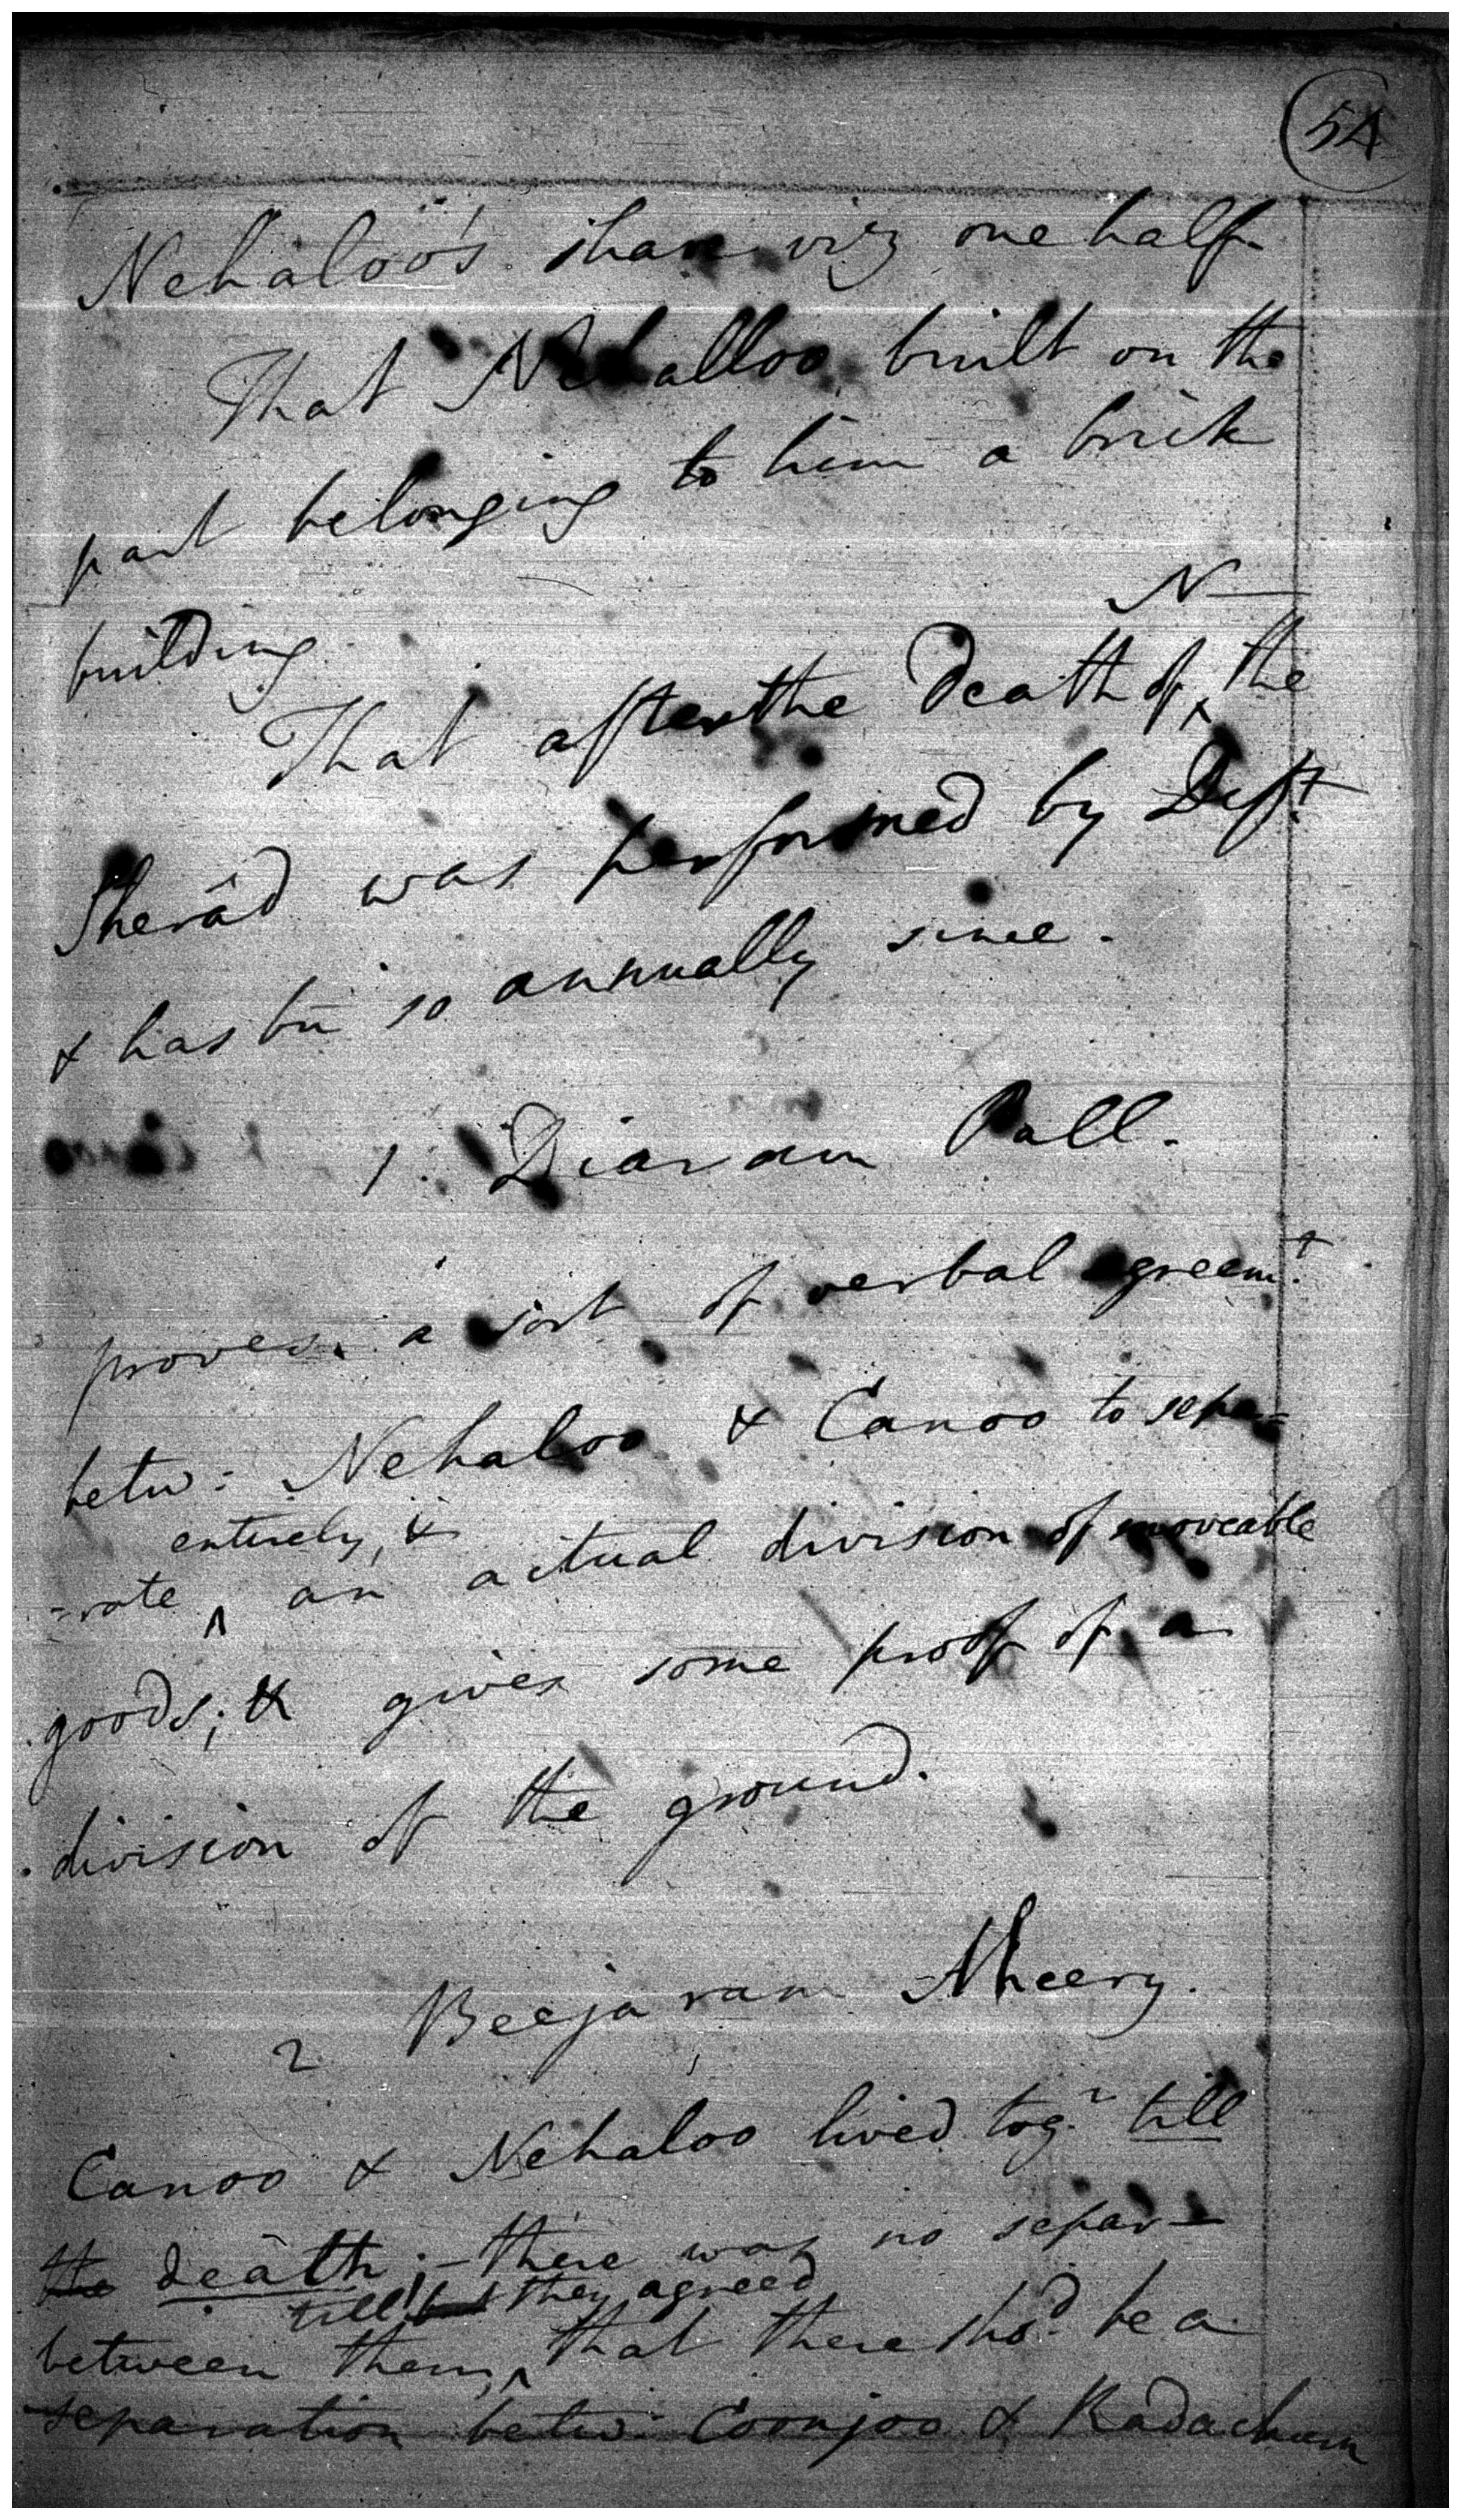 54
Nehaloo's share viz one half.
That Nehalloo built on the
part belonging to him a brick
building
N—
That after the Death of ^ the
Sherâd was performed by Deft.
& has bn so annually since.
1. Diaram Pall.
proves a sort of verbal agreemt.
betw: Nehaloo & Canoo to sepa=
entirely, &
=rate ^ an actual division of moveable
goods; & gives some proof of a
division of the ground.
2 Beejaram
Canoo & Nehaloo lived togr. till
the death; – there was no separ–
till they agreed
between them, ^ that there shod. be a
separation betw: Coonjoo & Radachurn